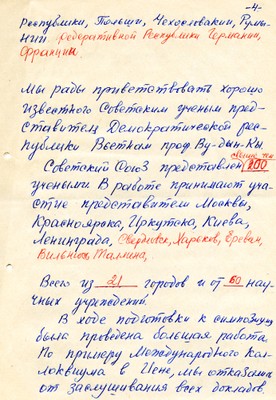 -4-
Республики, Польши, Чехословакии, Румы-
нии Федеративной Республики Германии,
Франции.
Мы рады приветствовать хорошо
известного Советским ученым пред-
ставителя Демократической рес-
публики Вьетнам проф. Ву-дын-Кы.
Советский Союз представлен свыше чем 200
учеными. В работе принимают уча-
стие представители Москвы,
Красноярска, Иркутска, Киева,
Ленинграда, Свердловск, Харьков, Ереван,
Вильнюс, Таллина,
Всего из 21 городов и от 60 нау-
чных учреждений.
В ходе подготовки к симпозиуму
была проведена большая работа.
По примеру Международного Кол-
локвиума в Иене, мы отказались
от заслушивания всех докладов,